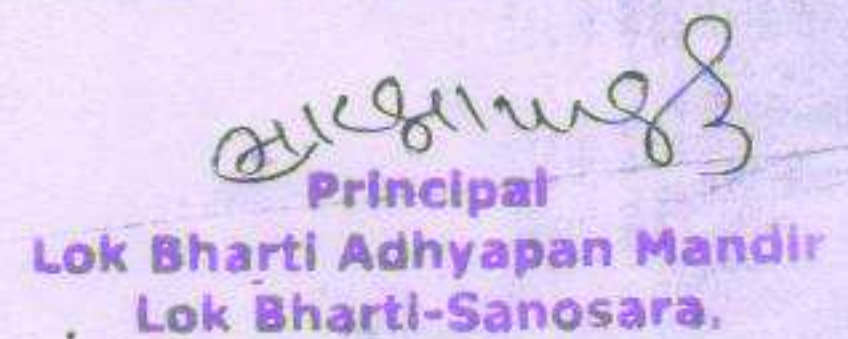 Principal
Lok Bharti Adhyapan Mandir
Lok Bharti-Sanosara.